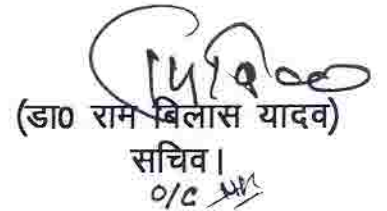 (डा0 राम बिलास यादव)
सचिव।
O/C